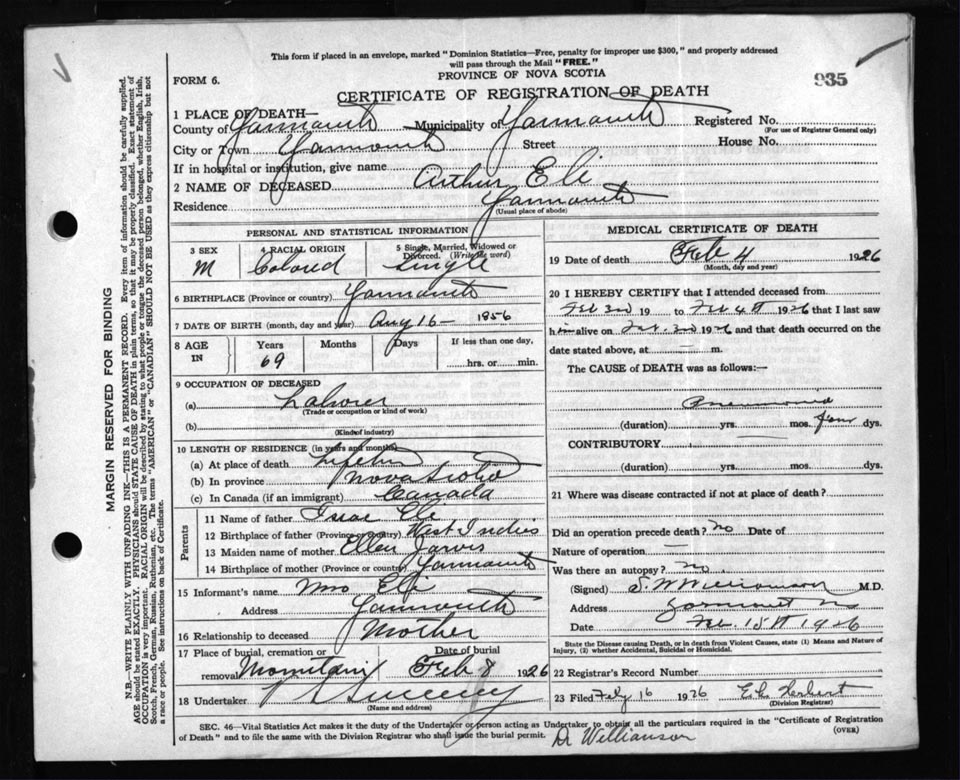 This form if placed in an envelope, marked "Dominion Statistics—Free, penalty for improper use $300," and properly addressed
will pass through the Mail "FREE."
PROVINCE OF NOVA SCOTIA
FORM 6.
935
CERTIFICATE OF REGISTRATION OF DEATH
1 PLACE OF DEATH—
County of Yarmouth Municipality of Yarmouth Registered No.
(For use of Registrar General only)
City or Town Yarmouth Street House No.
If in hospital or institution, give name
2 NAME OF DECEASED Arthur Eli
Residence Yarmouth
(Usual place of abode)
PERSONAL AND STATISTICAL INFORMATION
3 SEX M
4 RACIAL ORIGIN Colored
5 Single, Married, Widowed or Divorced. (Write the word) Single
6 BIRTHPLACE (Province or country) Yarmouth
7 DATE OF BIRTH (month, day and year) Aug 16 - 1856
8 AGE IN Years 69 Months Days If less than one day, hrs. or min.
9 OCCUPATION OF DECEASED
(a) Laborer
(Trade or occupation or kind of work)
(b)
(Kind of industry)
10 LENGTH OF RESIDENCE (in years and months)
(a) At place of death Lifetime
(b) In province Nova Scotia
(c) In Canada (if an immigrant) Canada
Parents
11 Name of father Isac Eli
12 Birthplace of father (Province or country) West Indies
13 Maiden name of mother Ellen Jarvis
14 Birthplace of mother (Province or country) Yarmouth
15 Informant's name Mrs Eli
Address Yarmouth
16 Relationship to deceased Mother
17 Place of burial, cremation or removal Mountain Date of burial Feb 8 1926
18 Undertaker V Sweeney
(Name and address)
MEDICAL CERTIFICATE OF DEATH
19 Date of death Feb 4 1926
(Month, day and year)
20 I HEREBY CERTIFY that I attended deceased from
Feb 3rd 19 to Feb 4th 1926 that I last saw
him alive on Feb. 3rd 1926 and that death occurred on
date stated above, at — m.
The CAUSE of DEATH was as follows:—
Pneumonia
(duration) yrs. mos. four dys.
CONTRIBUTORY
(duration) yrs. mos. dys.
21 Where was disease contracted if not at place of death?
Did an operation precede death? no Date of
Nature of operation —
Was there an autopsy? no
(Signed) S. W Williamson M.D.
Address Yarmouth NS
Date Feb. 15th 1926
State the Disease causing Death, or in death from Violent Causes, state (1) Means and Nature of
Injury, (2) whether Accidental, Suicidal or Homicidal.
22 Registrar's Record Number
23 Filed Feby 16 1926 E L Herbert
(Division Registrar)
SEC. 46—Vital Statistics Act makes it the duty of the Undertaker or person acting as Undertaker to obtain all the particulars required in the "Certificate of Registration
of Death" and to file the same with the Division Registrar who shall issue the burial permit.
(OVER)
Dr Williamson
MARGIN RESERVED FOR BINDING
N.B.—WRITE PLAINLY WITH UNFADING INK—THIS IS A PERMANENT RECORD. Every item of information should be carefully supplied.
AGE should be stated EXACTLY. PHYSICIANS should STATE CAUSE OF DEATH in plain terms, so that it may be properly classified. Exact statement of
OCCUPATION is very important. RACIAL ORIGIN will be described by stating to what people or tongue the deceased person belonged, whether English, Irish,
Scotch, French, German, Russian, Ruthenian, etc. The terms "AMERICAN" or "CANADIAN" SHOULD NOT BE USED as they express citizenship but not
a race or people. See instructions on back of Certificate.